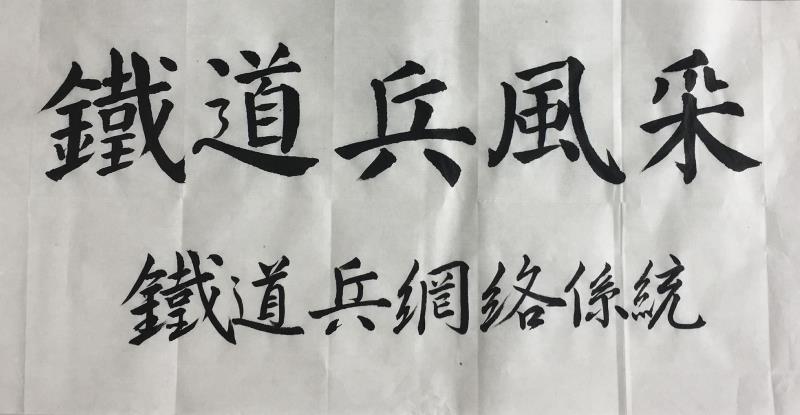 鐵道兵風采
鐵道兵網絡係統